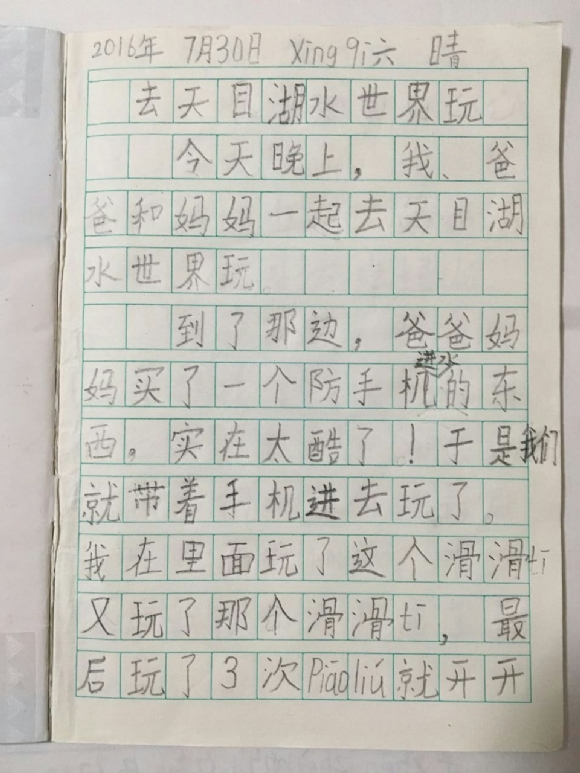 2016年 7月30日 Xing qi六 晴
去天目湖水世界玩
今天晚上，我、爸
爸和妈妈一起去天目湖
水世界玩。
到了那边，爸爸妈
妈买了一个防手机进水的东
西。实在太酷了！于是我们
就带着手机进去玩了。
我在里面玩了这个滑滑tī
又玩了那个滑滑tī，最
后玩了3次Piāoliú就开开